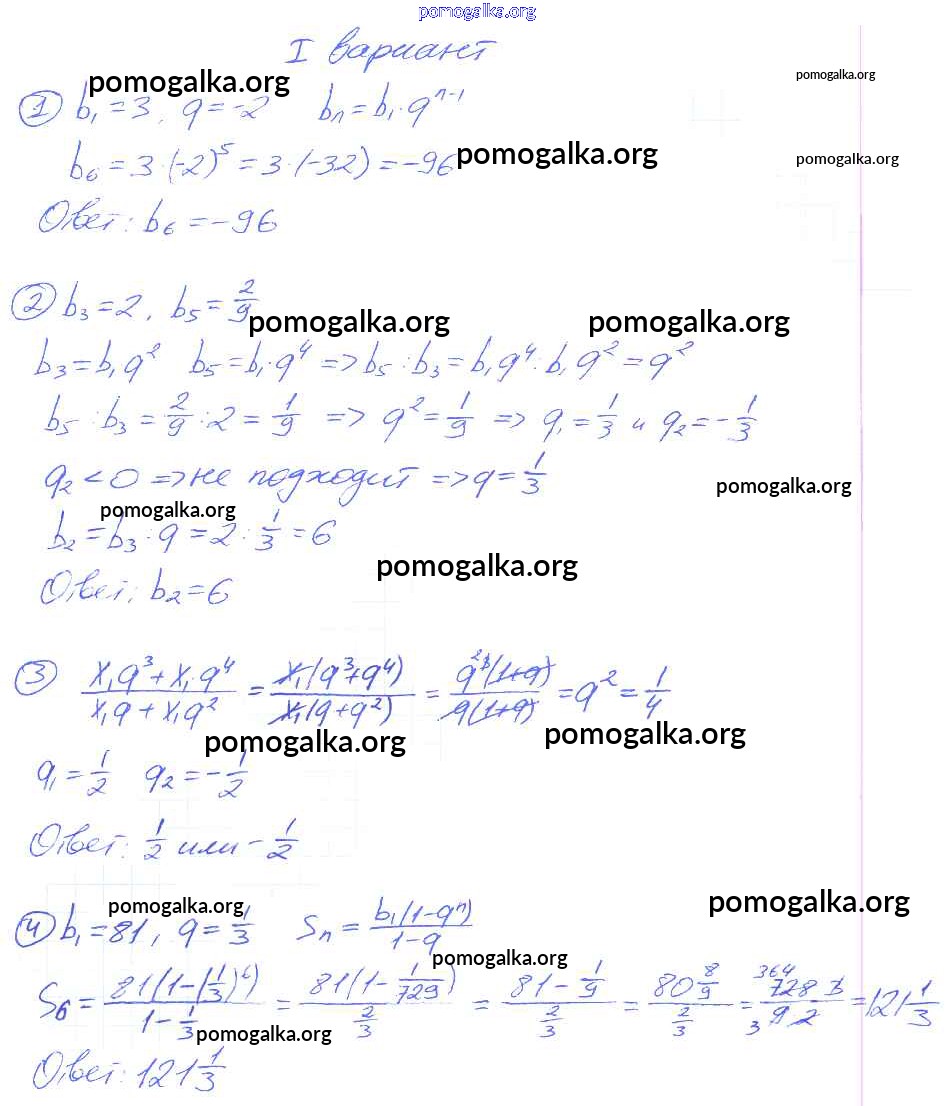 pomogalka.org
I вариант
pomogalka.org pomogalka.org
① b₁ = 3, q = -2 bₙ = b₁·qⁿ⁻¹
b₆ = 3·(-2)⁵ = 3·(-32) = -96 pomogalka.org pomogalka.org
Ответ: b₆ = -96
② b₃ = 2, b₅ = 2/9
pomogalka.org pomogalka.org
b₃ = b₁q² b₅ = b₁·q⁴ => b₅ : b₃ = b₁q⁴ : b₁q² = q²
b₅ : b₃ = 2/9 : 2 = 1/9 => q² = 1/9 => q₁ = 1/3 и q₂ = -1/3
q₂ < 0 => не подходит => q = 1/3 pomogalka.org
pomogalka.org
b₂ = b₃ : q = 2 : 1/3 = 6
pomogalka.org
Ответ: b₂ = 6
③ (x₁q³ + x₁·q⁴)/(x₁q + x₁q²) = x₁(q³+q⁴)/x₁(q+q²) = q³(1+q)/q(1+q) = q² = 1/4
pomogalka.org pomogalka.org
q₁ = 1/2 q₂ = -1/2
Ответ: 1/2 или -1/2
pomogalka.org pomogalka.org
④ b₁ = 81, q = 1/3 Sₙ = b₁(1-qⁿ)/(1-q)
pomogalka.org
S₆ = 81(1-(1/3)⁶)/(1-1/3) = 81(1-1/729)/(2/3) = (81-1/9)/(2/3) = (80 8/9)/(2/3) = 364 728·3/3 9·2 = 121 1/3
pomogalka.org
Ответ: 121 1/3